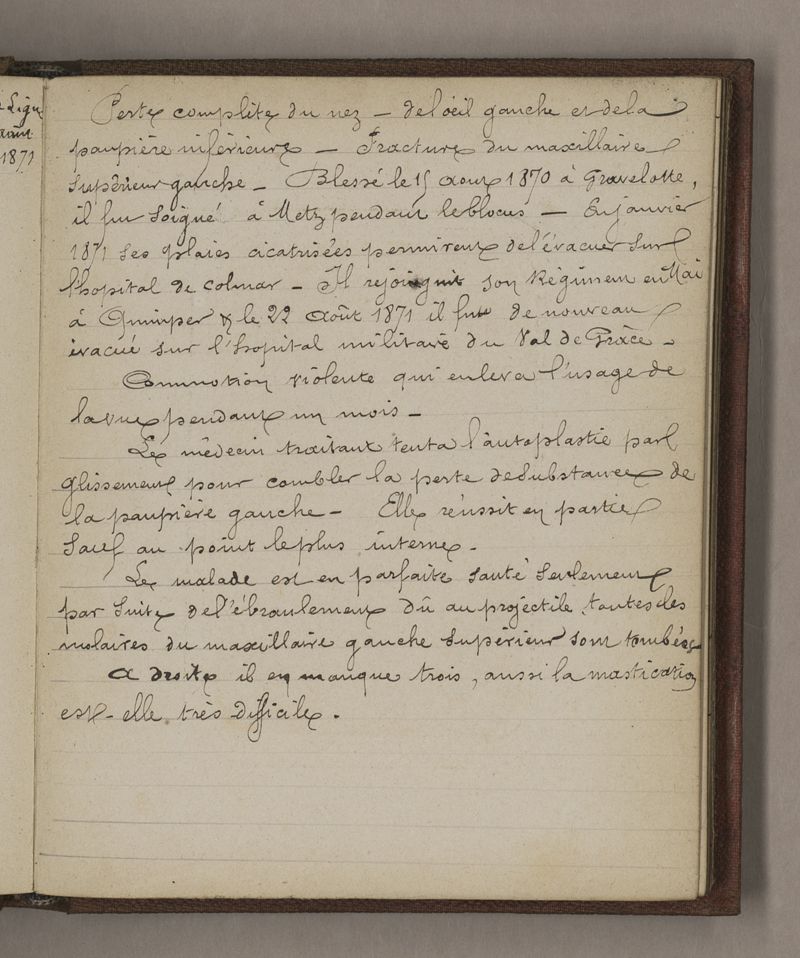 Ligne
août
1871
Perte complète du nez — de l'œil gauche et de la
paupière inférieure — Fracture du maxillaire
supérieur gauche — Blessé le 15 août 1870 à Gravelotte,
il fut soigné à Metz pendant le blocus — En janvier
1871 ses plaies cicatrisées permirent de l'évacuer sur
l'hopital de Colmar — Il rejoignit son Régiment en Mai
à Quimper & le 22 août 1871 il fut de nouveau
évacué sur l'hopital militaire du Val de Grâce —
Commotion violente qui enleva l'usage de
la vue pendant un mois —
Le médecin traitant tenta l'autoplastie par
glissement pour combler la perte de substance de
la paupière gauche — Elle réussit en partie
sauf au point le plus interne.
Le malade est en parfaite santé seulement
par suite de l'ébranlement dû au projectile toutes les
molaires du maxillaire gauche supérieur sont tombées
a droite il en manque trois, aussi la mastication
est-elle très difficile.